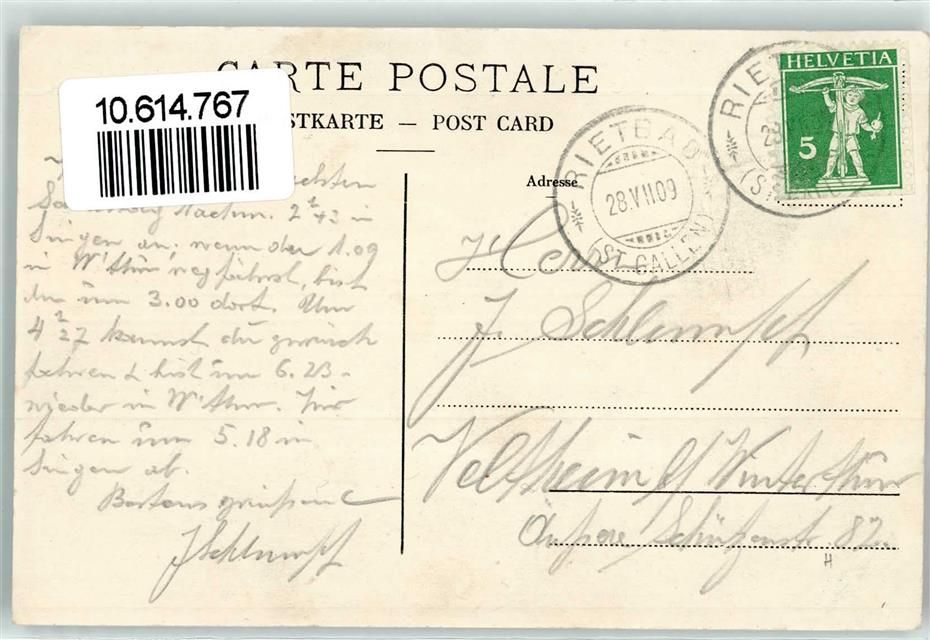 CARTE POSTALE
10.614.767
STKARTE — POST CARD
Adresse
RIETBAD
28.VII.09
(ST. GALLEN)
HELVETIA
5
RIET
28
Nachm. 2 43 in
Singen an. wenn du 1.09
in W'thur wegfährst, bist
du um 3.00 dort. Um
4 27 kannst du zurück
fahren & bist um 6.23
wieder in W'thur. Wir
fahren um 5.18 in
Singen ab.
Bestens grüssend
J Schlumpf
Herrn
J. Schlumpf
Veltheim b/ Winterthur
Äussere Schützenstr. 82.
H